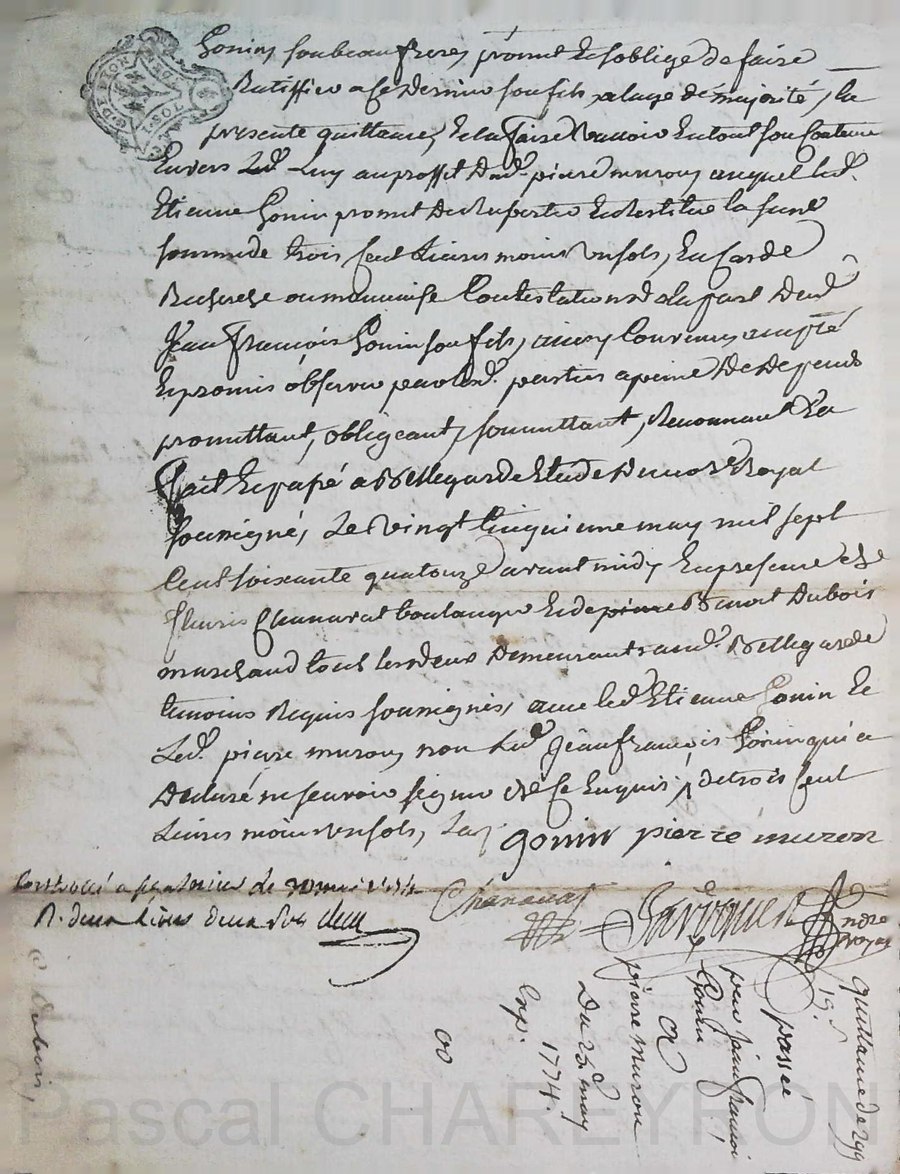 Gonin, son beau frere, promet et soblige de faire
Ratiffier a ce dernier son fils, a lage de majorité, la
presente quittance, et la faire valloir en tout son contenu
envers led. au proffit dud. pierre muron, auquel led.
Etienne Gonin promet de et restituer la susd.
somme de trois cent livres moins un sols, en cas de
Recherche ou mauvaise Contestations de la part dud.
Jean François Gonin son fils, ainsy Convenu, accepté
et promis observer par lesd. parties a peine de depends
promettant, obligeant, soumettant, Renonceant &a
fait et passé a Bellegarde Etude du no.re Royal
soussigné, Le vingt Cinquieme may mil sept
Cent soixante quatorze avant midy en presence de Sr
fleuris Chanavat boulanger et de pierre Benoit Dubois
marchand tous lesdeux demeurants aud. Bellegarde
temoins Requis soussignés, avec led. Etienne Gonin et
Led. pierre muron, non Led. Jean françois Gonin qui a
declaré ne scavoir signer de ce enquis, de trois cent
Livres moins un sols,
gonin pierre muron
Controllé a de may 1774
R. deux livres deux sols
Chanavat
no.re
royal
Dubois
quittance de 299
19 s
passée
par jean françois
Gonin
a
pierre muron
Du 25 may
1774.
Exp.
Pascal CHAREYRON